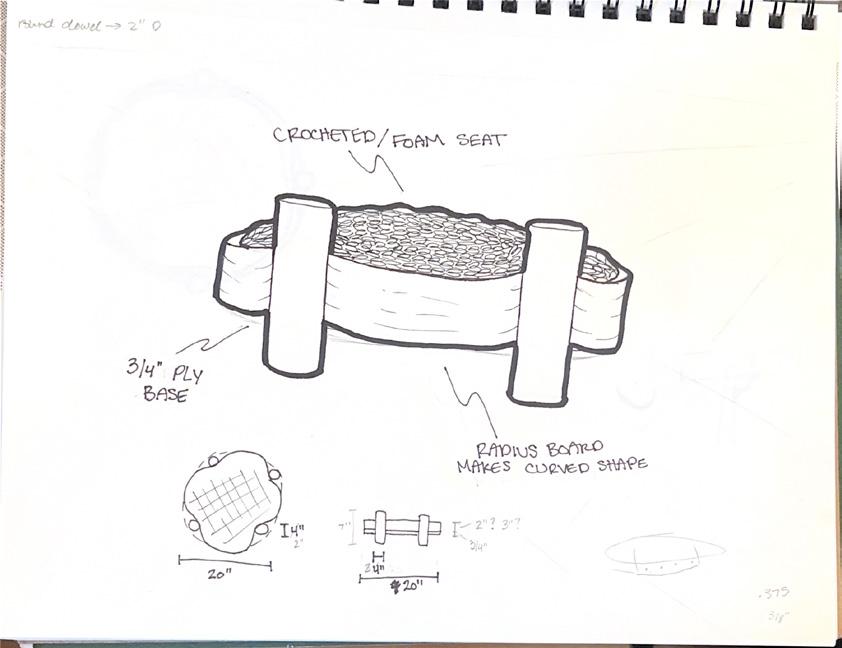 dowel → 2" D
CROCHETED/FOAM SEAT
3/4" PLY
BASE
RADIUS BOARD
MAKES CURVED SHAPE
4"
2"
20"
7"
2"? 3"?
3/4"
2 4"
20"
.375
3/8"